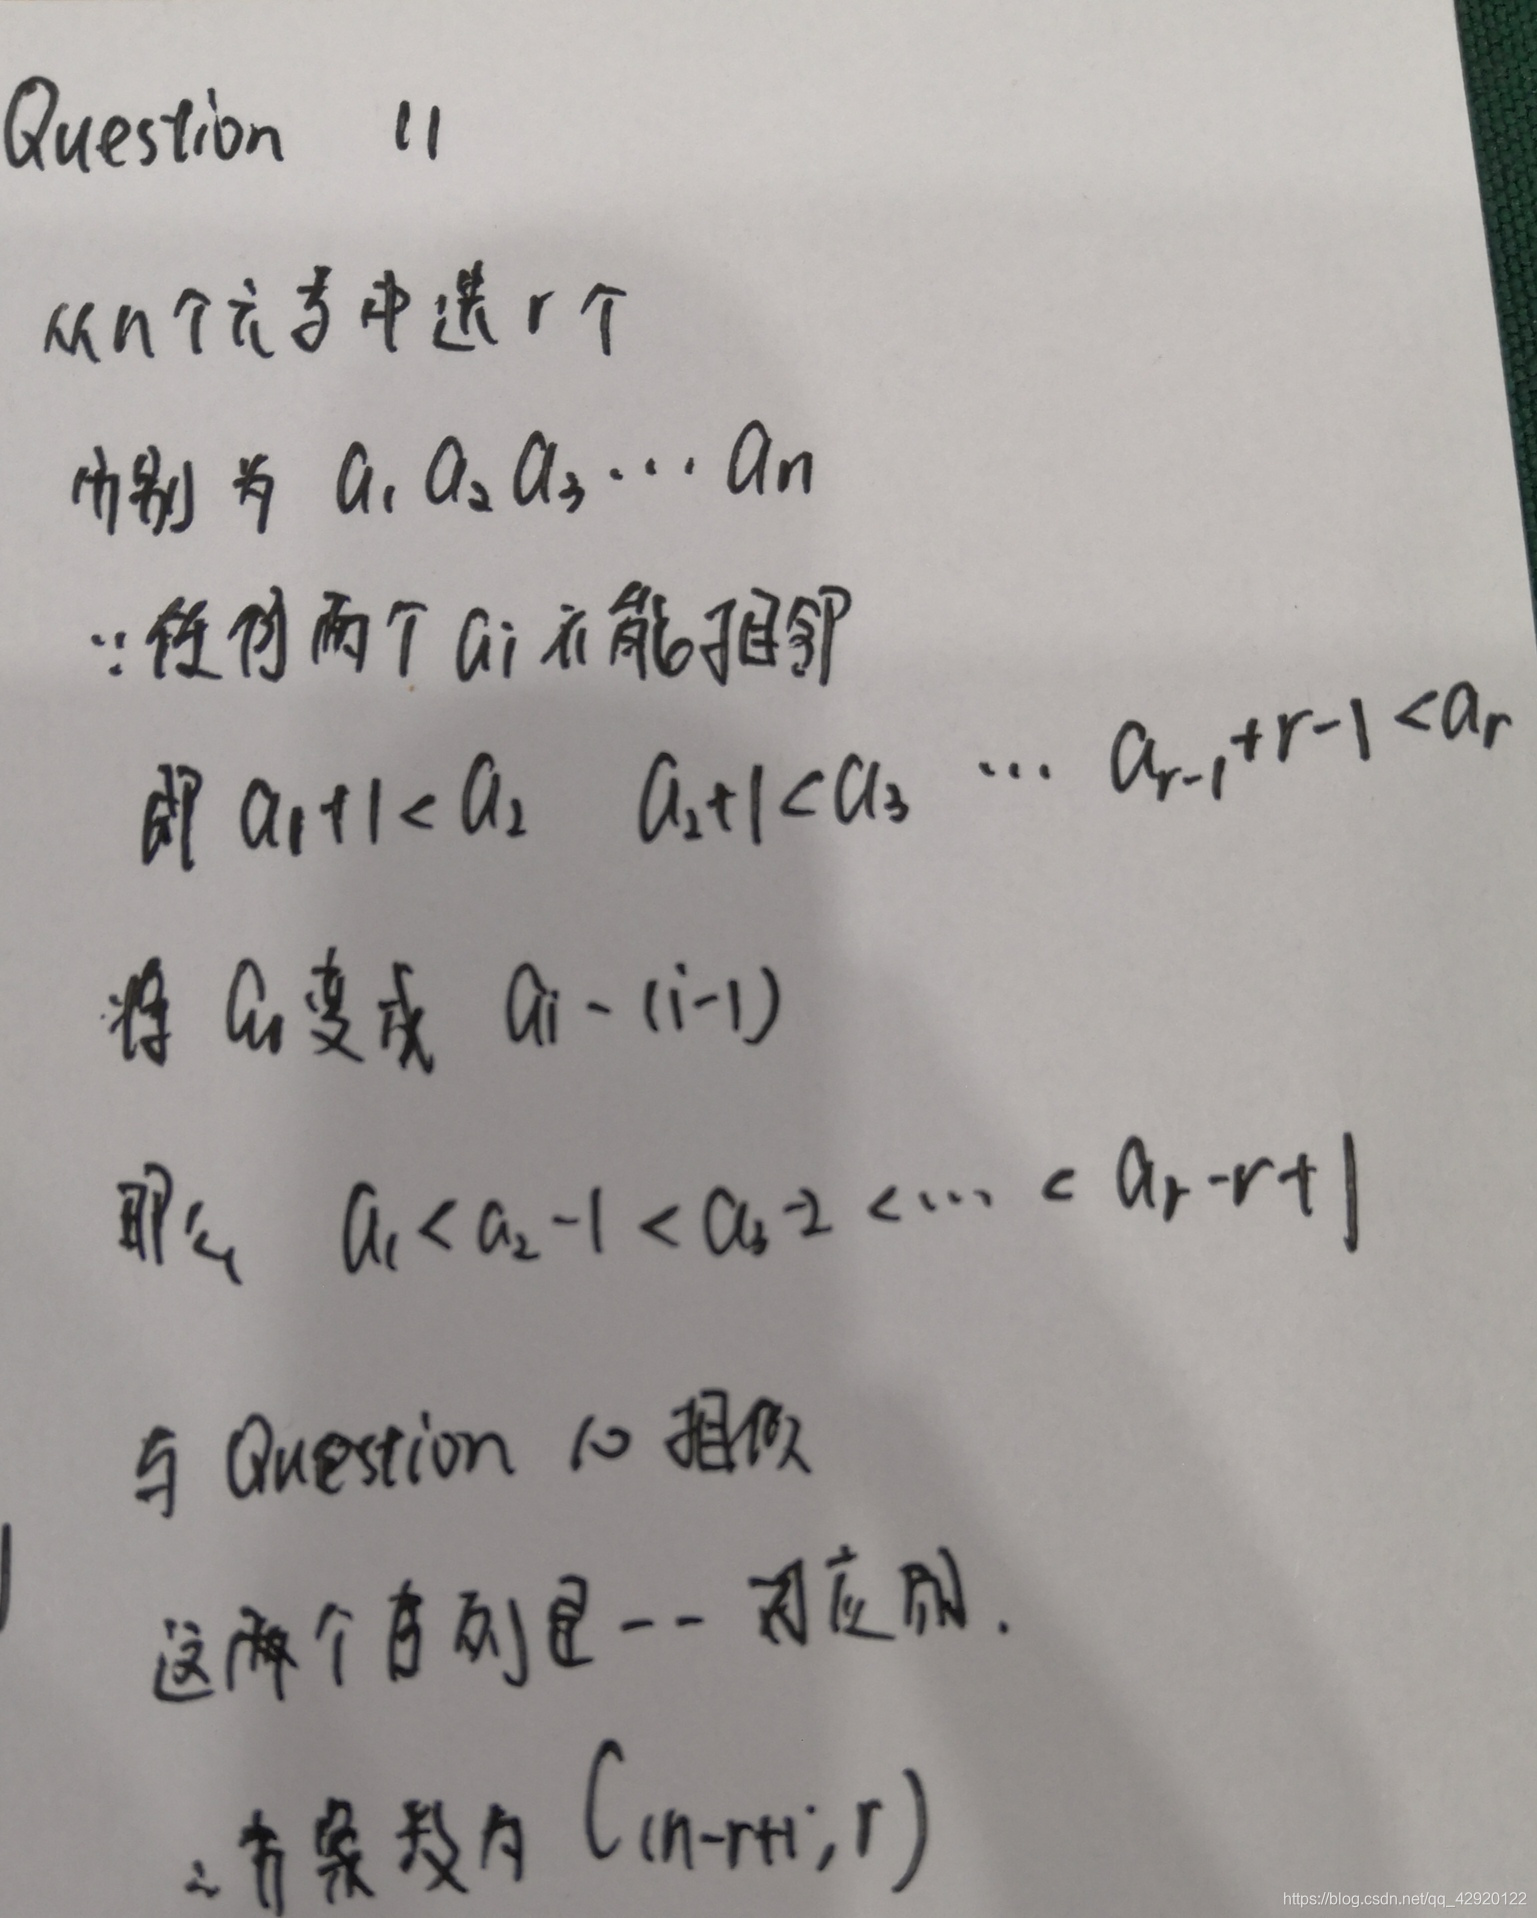 Question 11
从n个元素中选r个
分别为 a₁ a₂ a₃ ··· an
∵任何两个 ai 不能相邻
即 a₁+1<a₂ a₂+1<a₃ ··· a_{r-1}+r-1<a_r
将 ai变成 ai-(i-1)
那么 a₁<a₂-1<a₃-2<···<a_r-r+1
与 Question 10 相似
这两个序列是一一对应的.
∴方案数为 C(n-r+1, r)
https://blog.csdn.net/qq_42920122